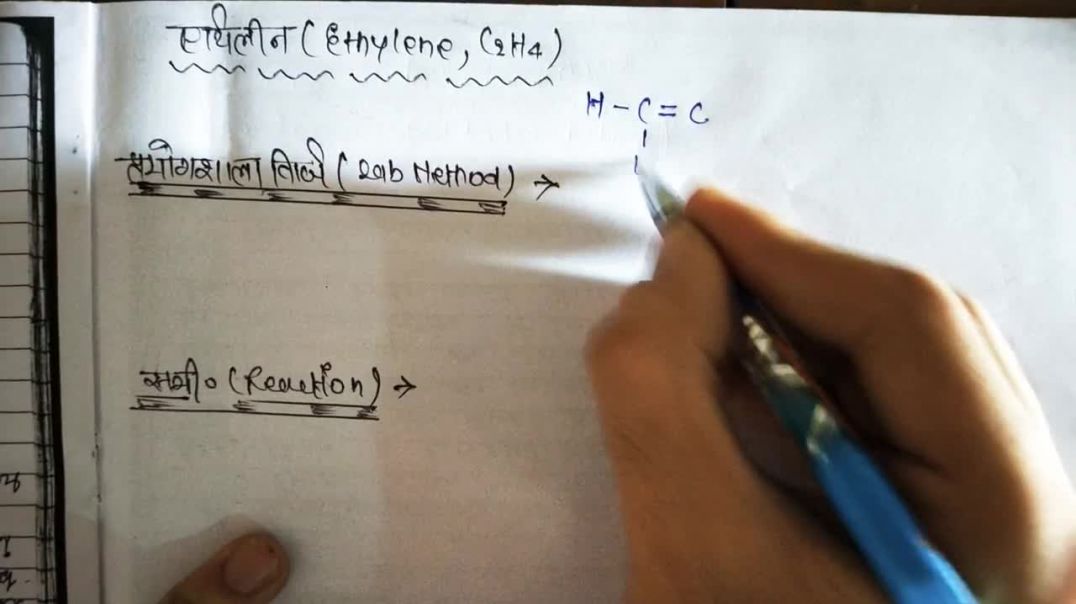 एथिलीन ( Ethylene, C2H4 )
H - C = C
प्रयोगशाला विधि ( Lab Method ) →
समी० ( Reaction ) →